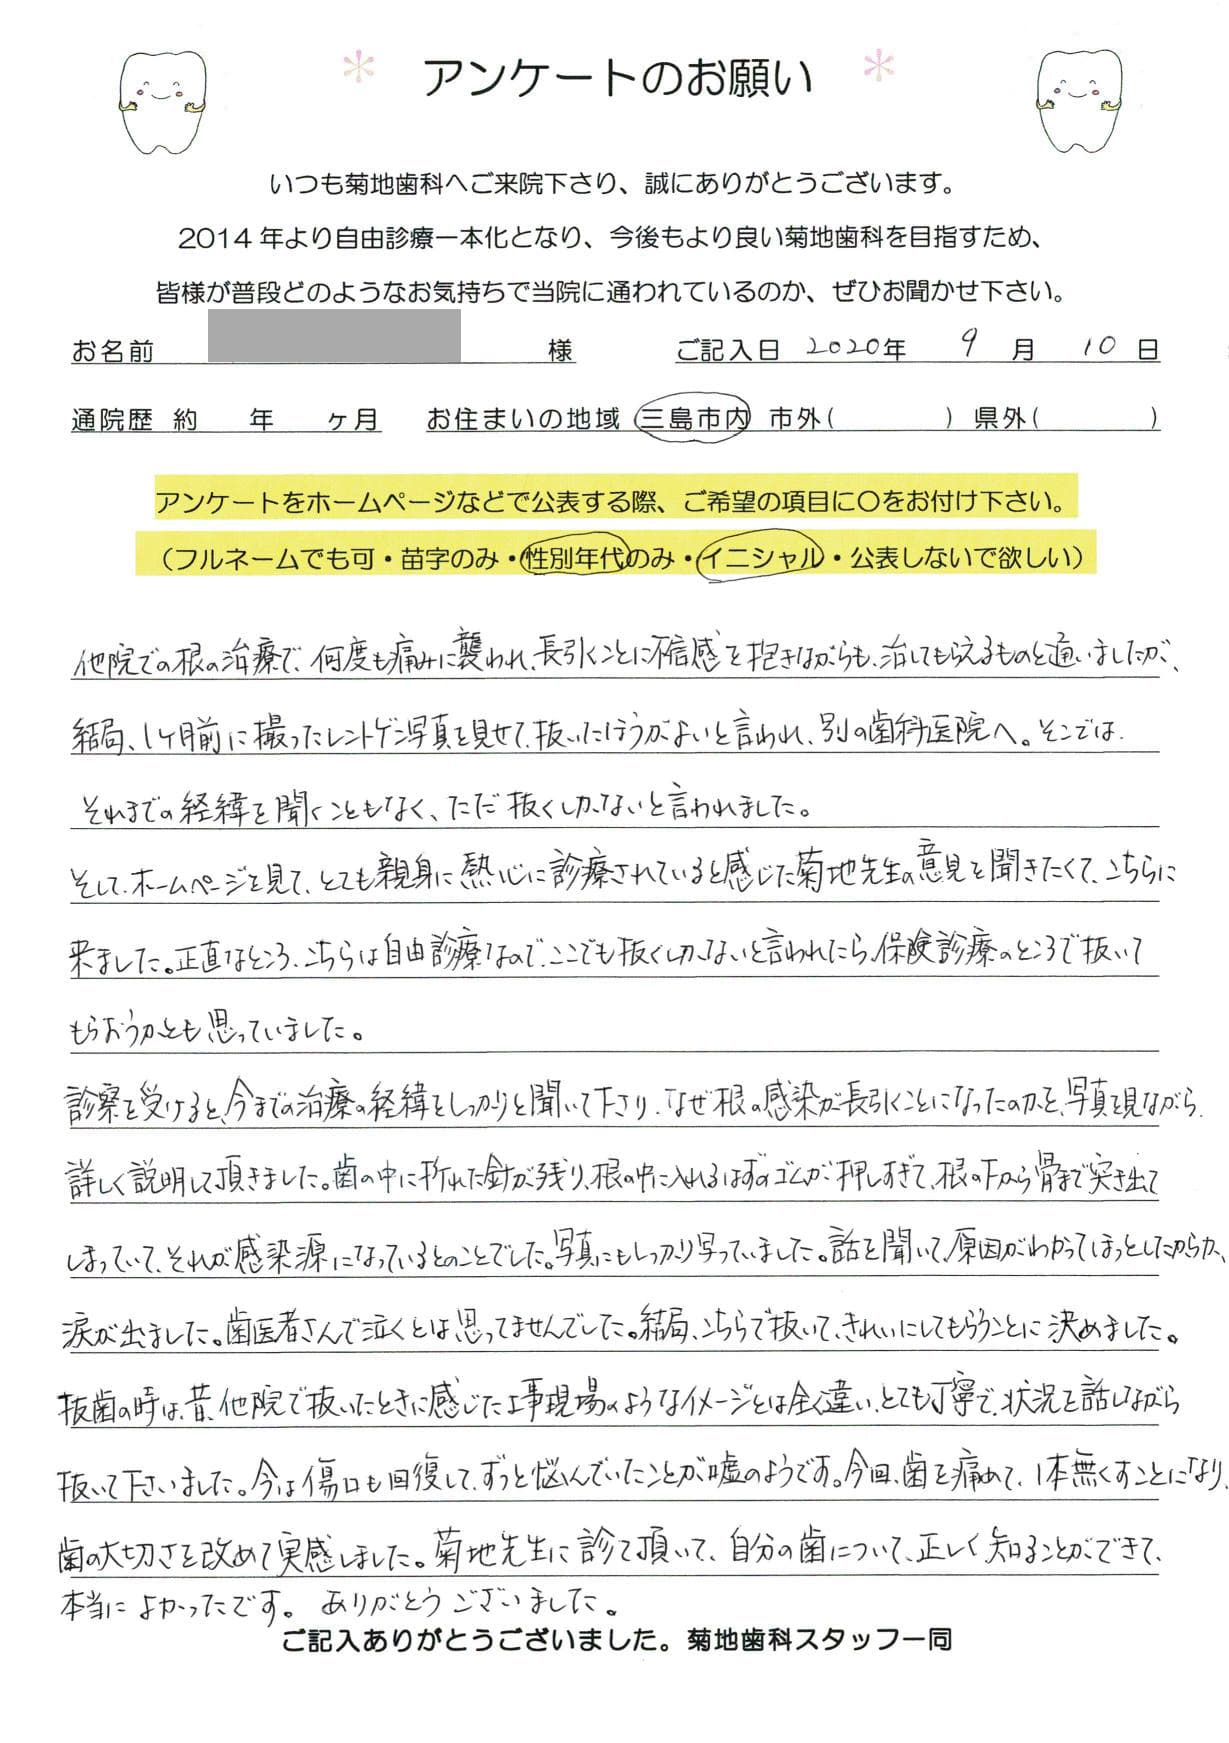 アンケートのお願い
いつも菊地歯科へご来院下さり、誠にありがとうございます。
2014年より自由診療一本化となり、今後もより良い菊地歯科を目指すため、
皆様が普段どのようなお気持ちで当院に通われているのか、ぜひお聞かせ下さい。
お名前 様 ご記入日 2020年 9月 10日
通院歴 約 年 ヶ月 お住まいの地域 三島市内 市外( ) 県外( )
アンケートをホームページなどで公表する際、ご希望の項目に〇をお付け下さい。
（フルネームでも可・苗字のみ・性別年代のみ・イニシャル・公表しないで欲しい）
他院での根の治療で、何度も痛みに襲われ、長引くことに不信感を抱きながらも、治してもらえるものと通いましたが、
結局、1ヶ月前に撮ったレントゲン写真を見せて、抜いたほうがよいと言われ、別の歯科医院へ。そこでは、
それまでの経緯を聞くこともなく、ただ抜くしかないと言われました。
そして、ホームページを見て、とても親身に熱心に診療されていると感じた菊地先生の意見を聞きたくて、こちらに
来ました。正直なところ、こちらは自由診療なので、ここでも抜くしかないと言われたら、保険診療のところで抜いて
もらおうかとも思っていました。
診察を受けると、今までの治療の経緯をしっかりと聞いて下さり、なぜ根の感染が長引くことになったのかを、写真を見ながら、
詳しく説明して頂きました。歯の中に折れた針が残り、根の中に入れるはずのゴムが押しすぎて、根の下から骨まで突き出て
しまっていて、それが感染源になっているとのことでした。写真にもしっかり写っていました。話を聞いて、原因がわかってほっとしたからか、
涙が出ました。歯医者さんで泣くとは思ってませんでした。結局、こちらで抜いて、きれいにしてもらうことに決めました。
抜歯の時は、昔、他院で抜いたときに感じた工事現場のようなイメージとは全く違い、とても丁寧で、状況を話しながら
抜いて下さいました。今は傷口も回復して、ずっと悩んでいたことが嘘のようです。今回、歯を痛めて、1本無くすことになり、
歯の大切さを改めて実感しました。菊地先生に診て頂いて、自分の歯について、正しく知ることができて、
本当によかったです。 ありがとうございました。
ご記入ありがとうございました。菊地歯科スタッフ一同